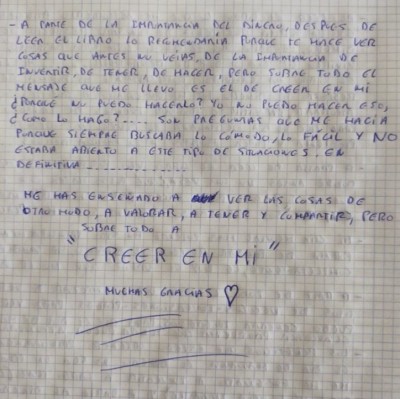 - A PARTE DE LA IMPORTANCIA DEL DINERO, DESPUES DE
LEER EL LIBRO LO RECOMENDARIA PORQUE TE HACE VER
COSAS QUE ANTES NO VEIAS, DE LA IMPORTANCIA DE
INVERTIR, DE TENER, DE HACER, PERO SOBRE TODO EL
MENSAJE QUE ME LLEVO ES EL DE CREER EN MI
¿PORQUÉ NO PUEDO HACERLO? YO NO PUEDO HACER ESO,
¿COMO LO HAGO?.... SON PREGUNTAS QUE ME HACIA
PORQUE SIEMPRE BUSCABA LO CÓMODO, LO FÁCIL Y NO
ESTABA ABIERTO A ESTE TIPO DE SITUACIONES. EN
DEFINITIVA ...............
ME HAS ENSEÑADO A VER LAS COSAS DE
OTRO MODO, A VALORAR, A TENER Y COMPARTIR, PERO
SOBRE TODO A
"CREER EN MI"
MUCHAS GRACIAS ♡